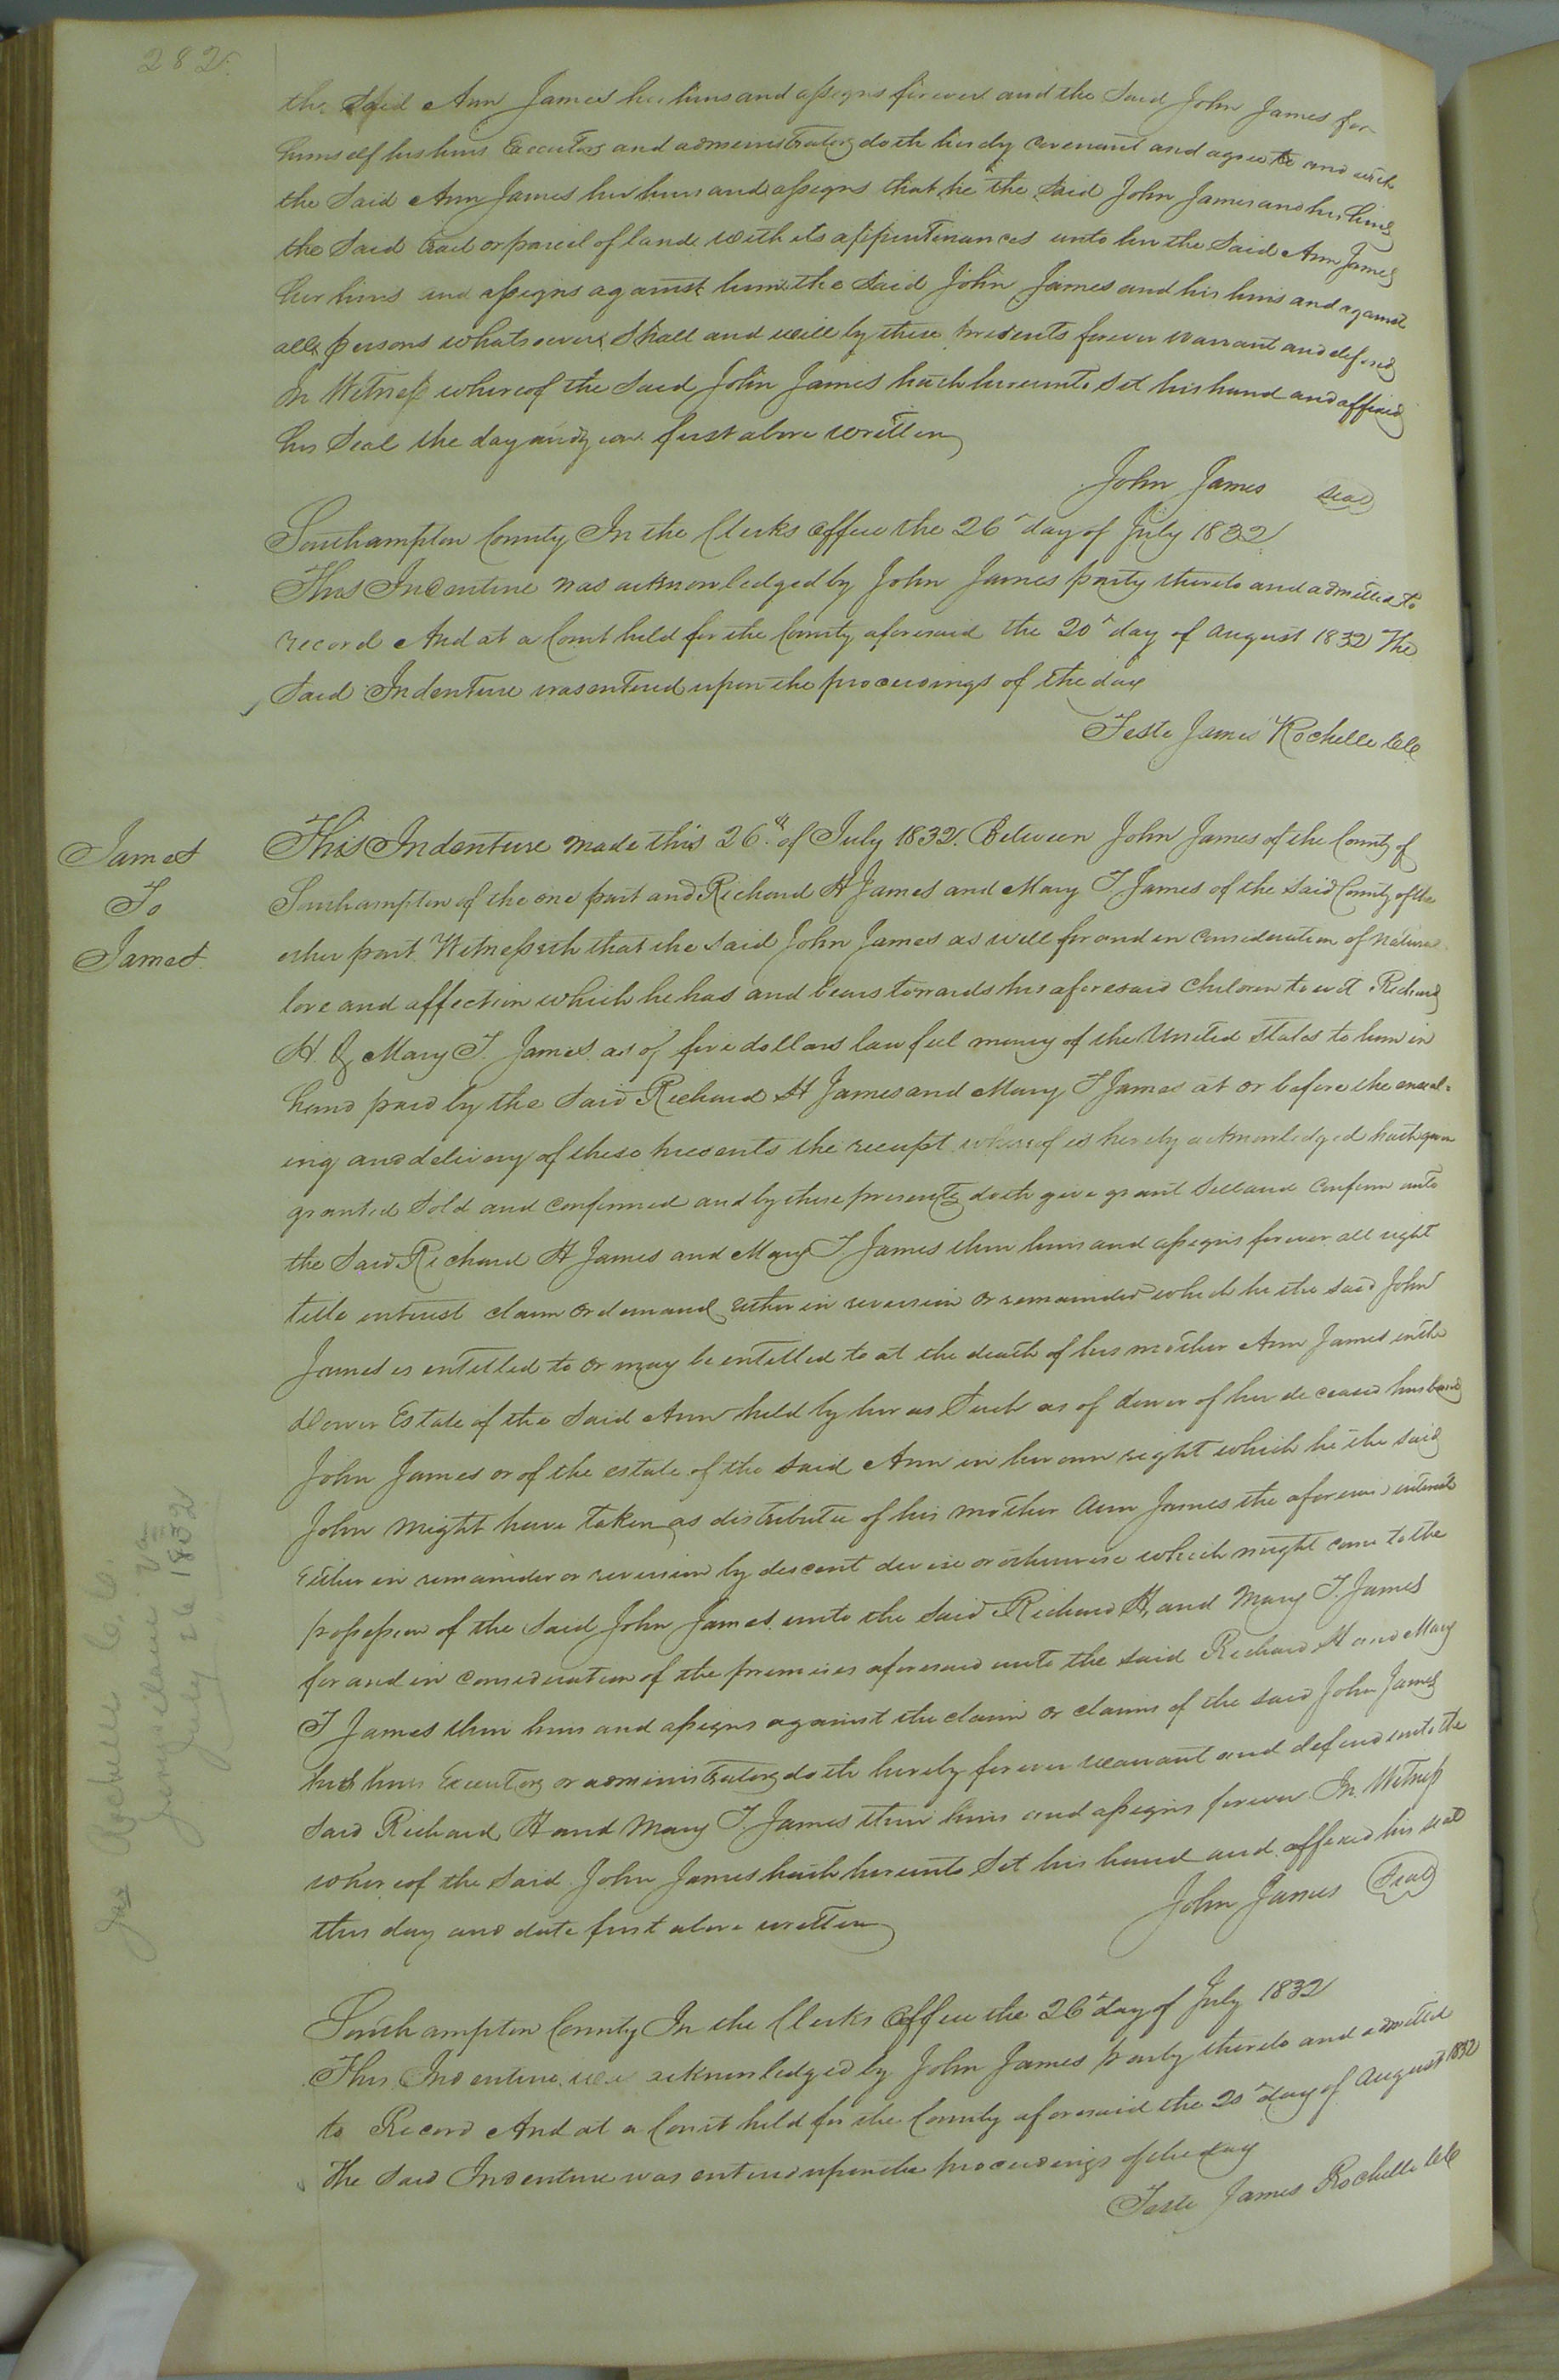 282.
the Said Ann James her heirs and assigns forever and the Said John James for
himself his heirs Executors and administrators doth hereby covenant and agree to and with
the Said Ann James her heirs and assigns that he the Said John James and his heirs
the Said tract or parcel of land with its appurtenances unto her the Said Ann James
her heirs and assigns against him the Said John James and his heirs and against
all persons whatsoever Shall and will by these presents forever warrant and defend
In Witness whereof the Said John James hath hereunto Set his hand and affixed
his Seal the day and year first above written
John James Seal
Southampton County In the Clerks office the 26 day of July 1832
This Indenture was acknowledged by John James party thereto and admitted to
record And at a Court held for the County aforesaid the 20 day of August 1832 The
Said Indenture was entered upon the proceedings of the day
Teste James Rochelle CC
James
To
James
This Indenture made this 26th of July 1832. Between John James of the County of
Southampton of the one part and Richard H James and Mary T James of the Said County of the
other part Witnesseth that the Said John James as well for and in consideration of natural
love and affection which he has and bears towards his aforesaid children to wit Richard
H. & Mary T. James as of five dollars lawful money of the United States to him in
hand paid by the Said Richard H James and Mary T James at or before the enseal-
ing and delivery of these presents the receipt whereof is hereby acknowledged hath given
granted Sold and confirmed and by these presents doth give grant Sell and confirm unto
the Said Richard H James and Mary T. James their heirs and assigns forever all right
title interest claim or demand either in reversion or remainder which he the said John
James is entitled to or may be entitled to at the death of his mother Ann James in the
dower Estate of the Said Ann held by her as Such as of dower of her deceased husband
John James or of the estate of the Said Ann in her own right which he the said
John might have taken as distributee of his mother Ann James the aforesaid interests
Either in remainder or reversion by descent devise or otherwise which might come to the
possession of the Said John James unto the Said Richard H, and Mary T. James
for and in consideration of the premises aforesaid unto the Said Richard H and Mary
T James their heirs and assigns against the claim or claims of the Said John James
his heirs Executors or administrators doth hereby forever warrant and defend unto the
Said Richard H and Mary T. James their heirs and assigns forever In Witness
whereof the Said John James hath hereunto Set his hand and affixed his seal
this day and date first above written
John James Seal
Southampton County In the Clerks Office the 26 day of July 1832
This Indenture was acknowledged by John James party thereto and admitted
to Record And at a Court held for the County aforesaid the 20 day of August 1832
The Said Indenture was entered upon the proceedings of the day
Teste James Rochelle CC
Jas Rochelle C.C.
July 26 1832